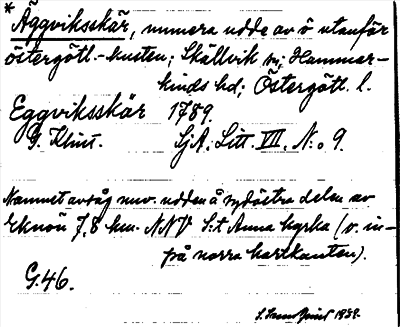 * Äggviksskär, numera udde av ö utanför
östergötl.-kusten; Skällvik sn; Hammar-
kinds hd; Östergötl. l.
Eggviksskär 1789.
G. Klint. SjA. Litt. VII. N:o 9.
Namnet avsåg nuv. udden å sydöstra delen av
Eknön 7,8 km. NNV S:t Anna kyrka (v. in-
på norra kartkanten).
G.46.
1939.